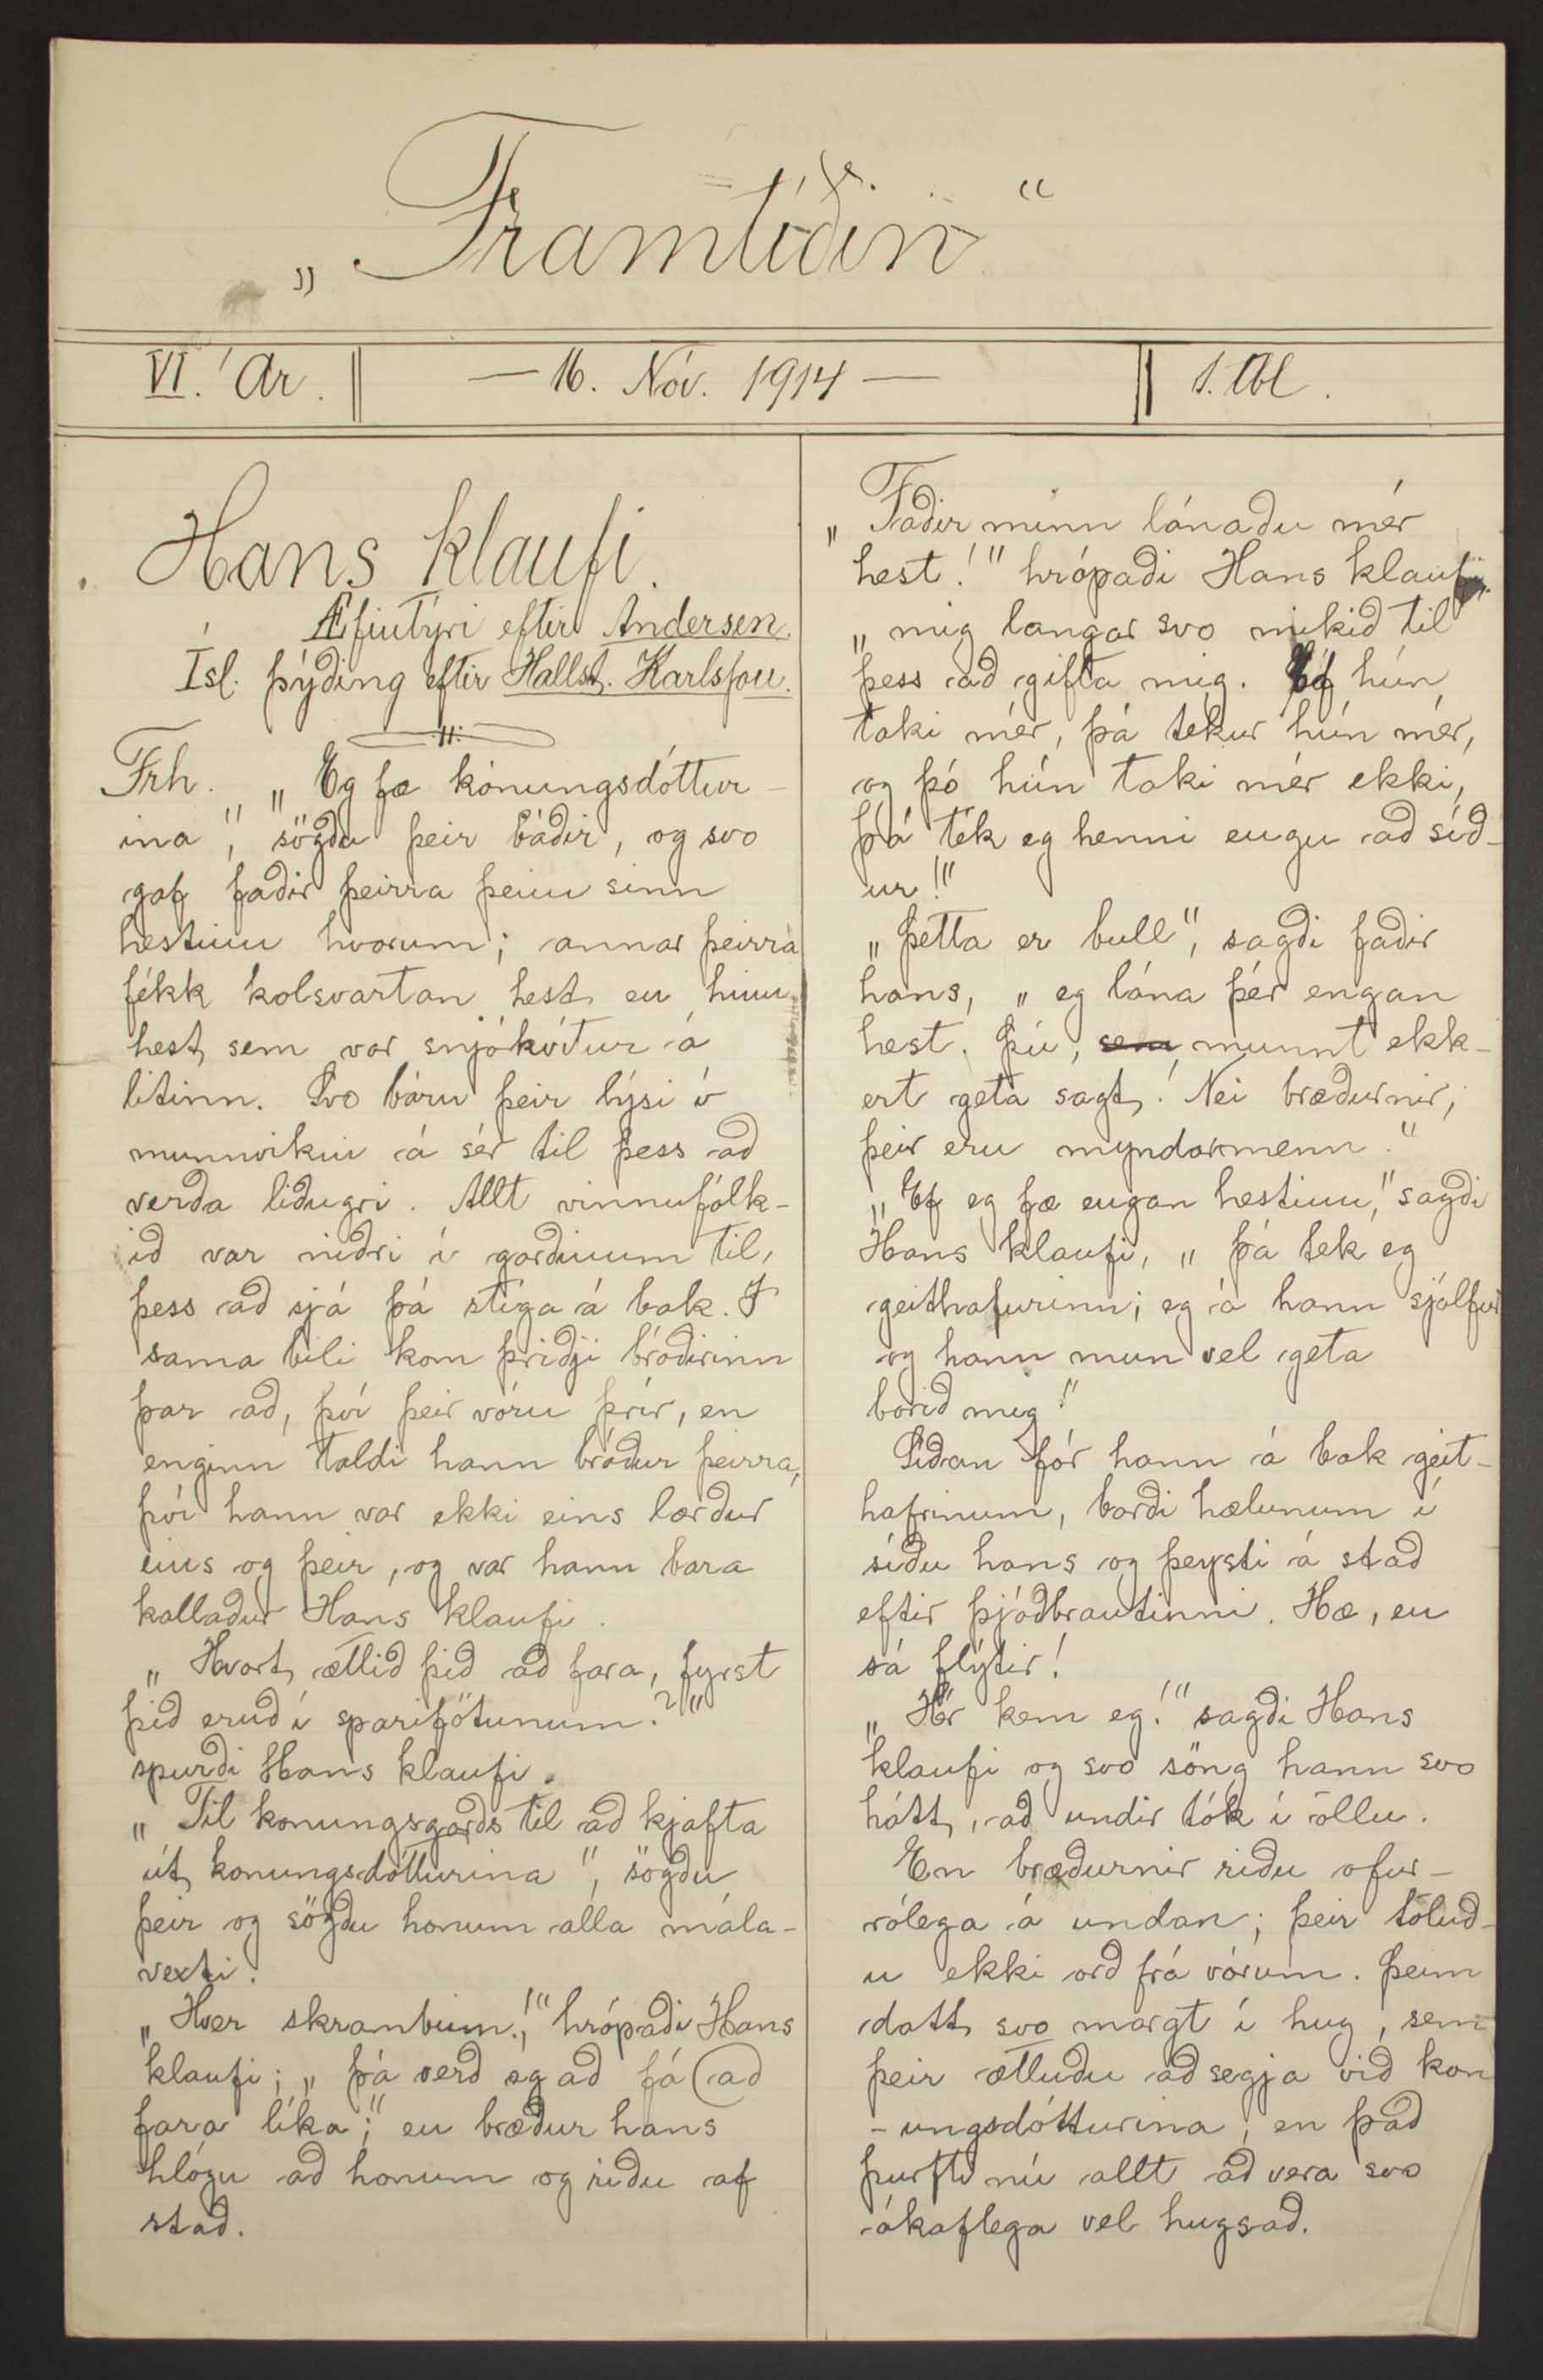 „Framtíðin“
VI. Ár.
— 16. Nóv. 1914 —
1. tbl.
Hans klaufi.
Æfintýri eftir Andersen.
Ísl. þýðing eftir Hallst. Karlsson.
Frh. „Eg fæ kónungsdóttur-
ina“, sögðu þeir báðir, og svo
gaf faðir þeirra þeim sinn
hestinn hvorum; annar þeirra
fékk kolsvartan hest en hinn
hest sem var snjókvítur á
litinn. Svo báru þeir lýsi í
munnvikin á sér til þess að
verða liðugri. Allt vinnufólk-
ið var niðri í garðinum til
þess að sjá þá stíga á bak. Í
sama bili kom þriðji bróðirinn
þar að, því þeir vóru þrír, en
enginn taldi hann bróður þeirra,
því hann var ekki eins lærður
eins og þeir, og var hann bara
kallaður Hans klaufi.
„Hvort ætlið þið að fara, fyrst
þið eruð í sparifötunum?“
spurði Hans klaufi.
„Til konungsgarðs til að kjafta
út konungsdótturina“, sögðu
þeir og sögðu honum alla mála-
vexti.
„Hver skrambinn!“, hrópaði Hans
klaufi; „þá verð eg að fá að
fara líka;“ en bræður hans
hlógu að honum og riðu af
stað.
„Faðir minn lánaðu mér
hest!“ hrópaði Hans klaufi
„mig langar svo mikið til
þess að gifta mig. Ef hún
taki mér, þá tekur hún mér,
og þó hún taki mér ekki,
þá tek eg henni engu að síð-
ur!“
„Þetta er bull“, sagði faðir
hans, „eg lána þér engan
hest. Þú, sem munnt ekk-
ert geta sagt! Nei bræðurnir,
þeir eru myndarmenn.“
„Ef eg fæ engan hestinn,“ sagði
Hans klaufi, „þá tek eg
geithafurinn; eg á hann sjálfur
og hann mun vel geta
borið mig“
Síðan fór hann á bak geit-
hafrinum, barði hælunum í
síðu hans og þeysti á stað
eftir þjóðbrautinni. Hæ, en
sá flýtir!
„Hér kem eg!“ sagði Hans
klaufi og svo söng hann svo
hátt, að undir tók í öllu.
En bræðurnir riðu ofur-
rólega á undan; þeir töluð-
u ekki orð frá vörum. Þeim
datt svo margt í hug, sem
þeir ætluðu að segja við kon
-ungsdótturina, en það
þurfti nú allt að vera svo
ákaflega vel hugsað.